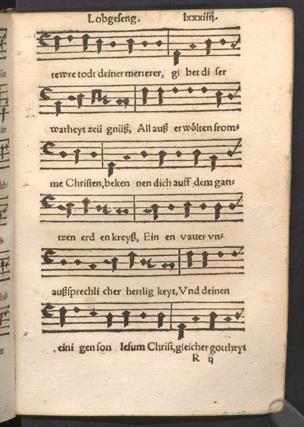 Lobgeseng. lxxxiiij.
tewre todt deiner merterer, gi bet di ser
warheyt zeü gnüß, All auß er wölten from⸗
me Christen, beken nen dich auff dem gan⸗
tzen erd en kreyß, Ein en vatter vn⸗
außsprechli cher herrlig keyt, Vnd deinen
eini gen son Iesum Christ, gleicher gottheyt
R ij